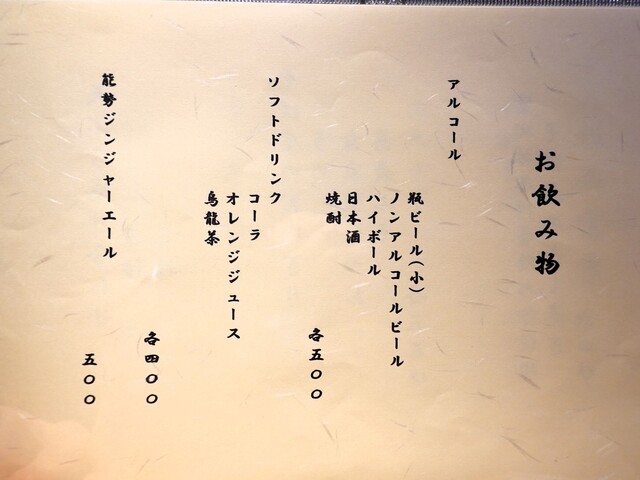 お飲み物
アルコール
瓶ビール(小)
ノンアルコールビール
ハイボール
日本酒
焼酎
各五〇〇
ソフトドリンク
コーラ
オレンジジュース
烏龍茶
各四〇〇
能勢ジンジャーエール
五〇〇